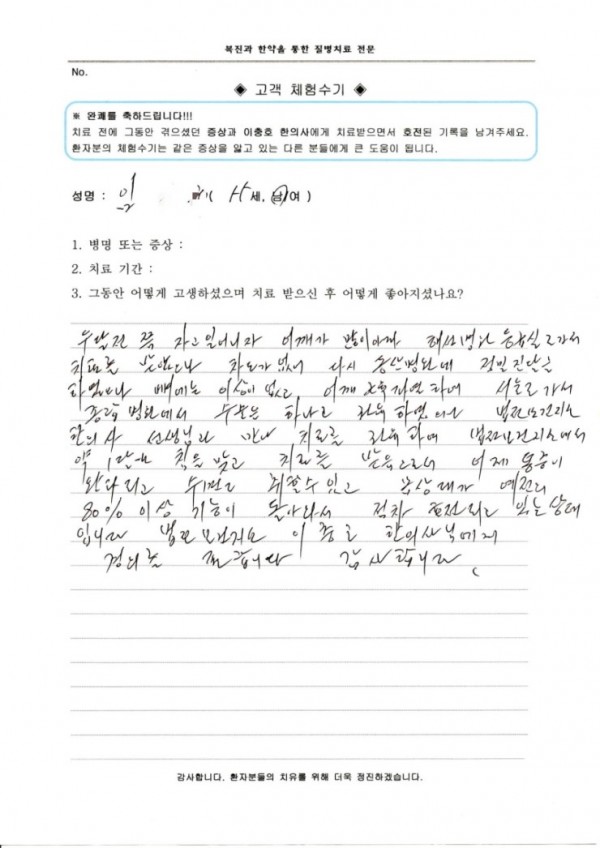 복진과 한약을 통한 질병치료 전문
No.
◈ 고객 체험수기 ◈
※ 완쾌를 축하드립니다!!!
치료 전에 그동안 겪으셨던 증상과 이충호 한의사에게 치료받으면서 호전된 기록을 남겨주세요.
환자분의 체험수기는 같은 증상을 앓고 있는 다른 분들에게 큰 도움이 됩니다.
성명 : 임 ( 세, 남/여 )
1. 병명 또는 증상 :
2. 치료 기간 :
3. 그동안 어떻게 고생하셨으며 치료 받으신 후 어떻게 좋아지셨나요?
두달전 쯤 자고 일어나자 어깨가 많이 아파 병원 응급실로 가서
치료를 받았으나 차도가 없어 다시 병원에 정밀진단을
하였으나 뼈에는 이상이 없고 어깨 하여 서울로 가서
종합 병원에서 수술은 하나 법전보건지소
한의사 선생님과 만나 치료를 법전보건지소에서
약 1달 침을 맞고 치료를 받음으로서 이제 통증이
있고 예전의
80% 이상 기능이 돌아와서 점차 호전되고 있는 상태
입니다 법전보건지소 이충호 한의사님에게
경의를 표합니다 감사합니다
감사합니다. 환자분들의 치유를 위해 더욱 정진하겠습니다.